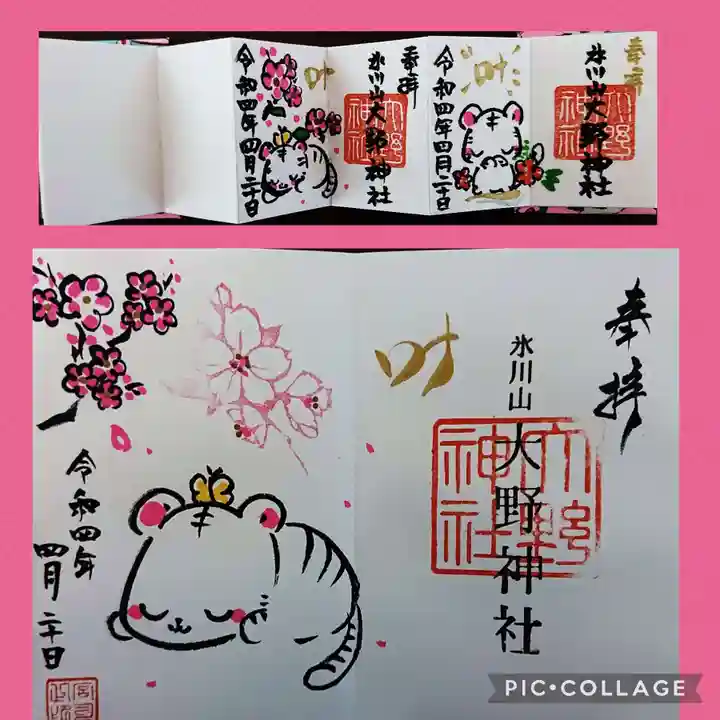 奉拝
叶
氷川山大野神社
大野
神社
令和四年四月二十日
奉拝
氷川山大野神社
大野
神社
叶
令和四年四月二十日
奉拝
氷川山
大野神社
大野
神社
叶
令和四年
四月二十日
PIC•COLLAGE